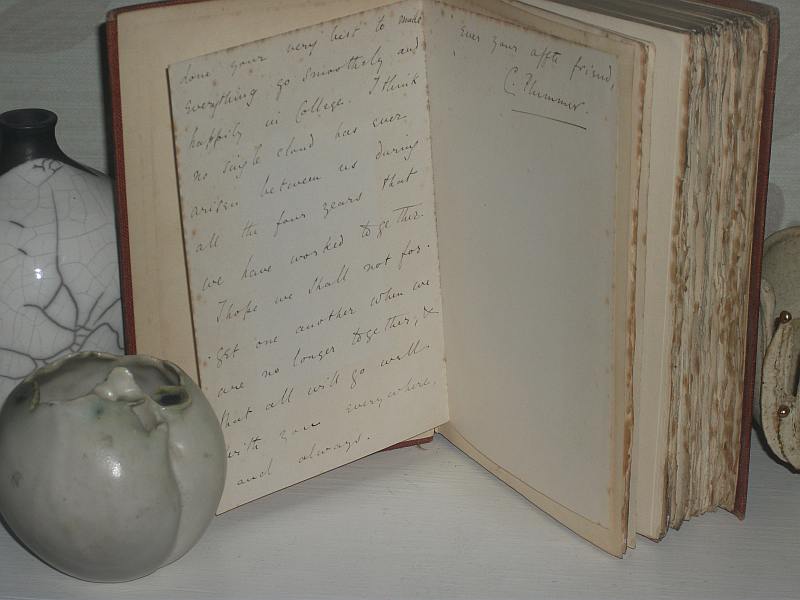 done your very best to make
everything go smoothly and
happily in College. I think
no single cloud has ever
arisen between us during
all the four years that
we have worked together.
I hope we shall not for-
get one another when we
are no longer together, &
that all will go well
with you everywhere,
and always.
Ever your affte friend,
C. Plummer.